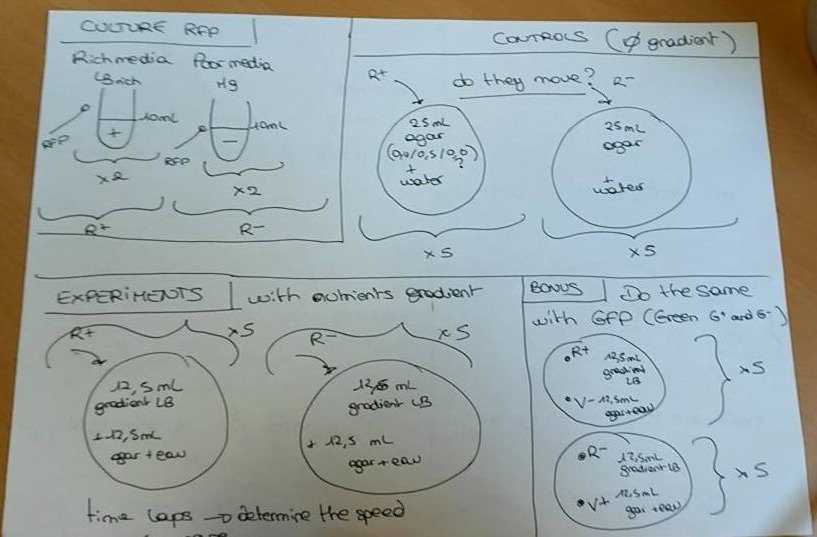 CULTURE RFP
Rich media
LB rich
Poor media
M9
10mL
+
RFP
x2
R+
10mL
-
RFP
x2
R-
CONTROLS (∅ gradient)
do they move?
R+
25 mL
agar
+
water
x5
R-
25 mL
agar
+
water
x5
EXPERIMENTS
with nutrients gradient
R+
x5
12,5 mL
gradient LB
+ 12,5mL
agar + eau
R-
x5
12,5 mL
gradient LB
+ 12,5 mL
agar + eau
time laps → determine the speed
BONUS
Do the same
with GFP (Green G+ and G-)
R+
12,5mL
gradient
LB
V- 12,5mL
agar+eau
x5
R-
12,5mL
gradient LB
V+ 12,5mL
agar +eau
x5